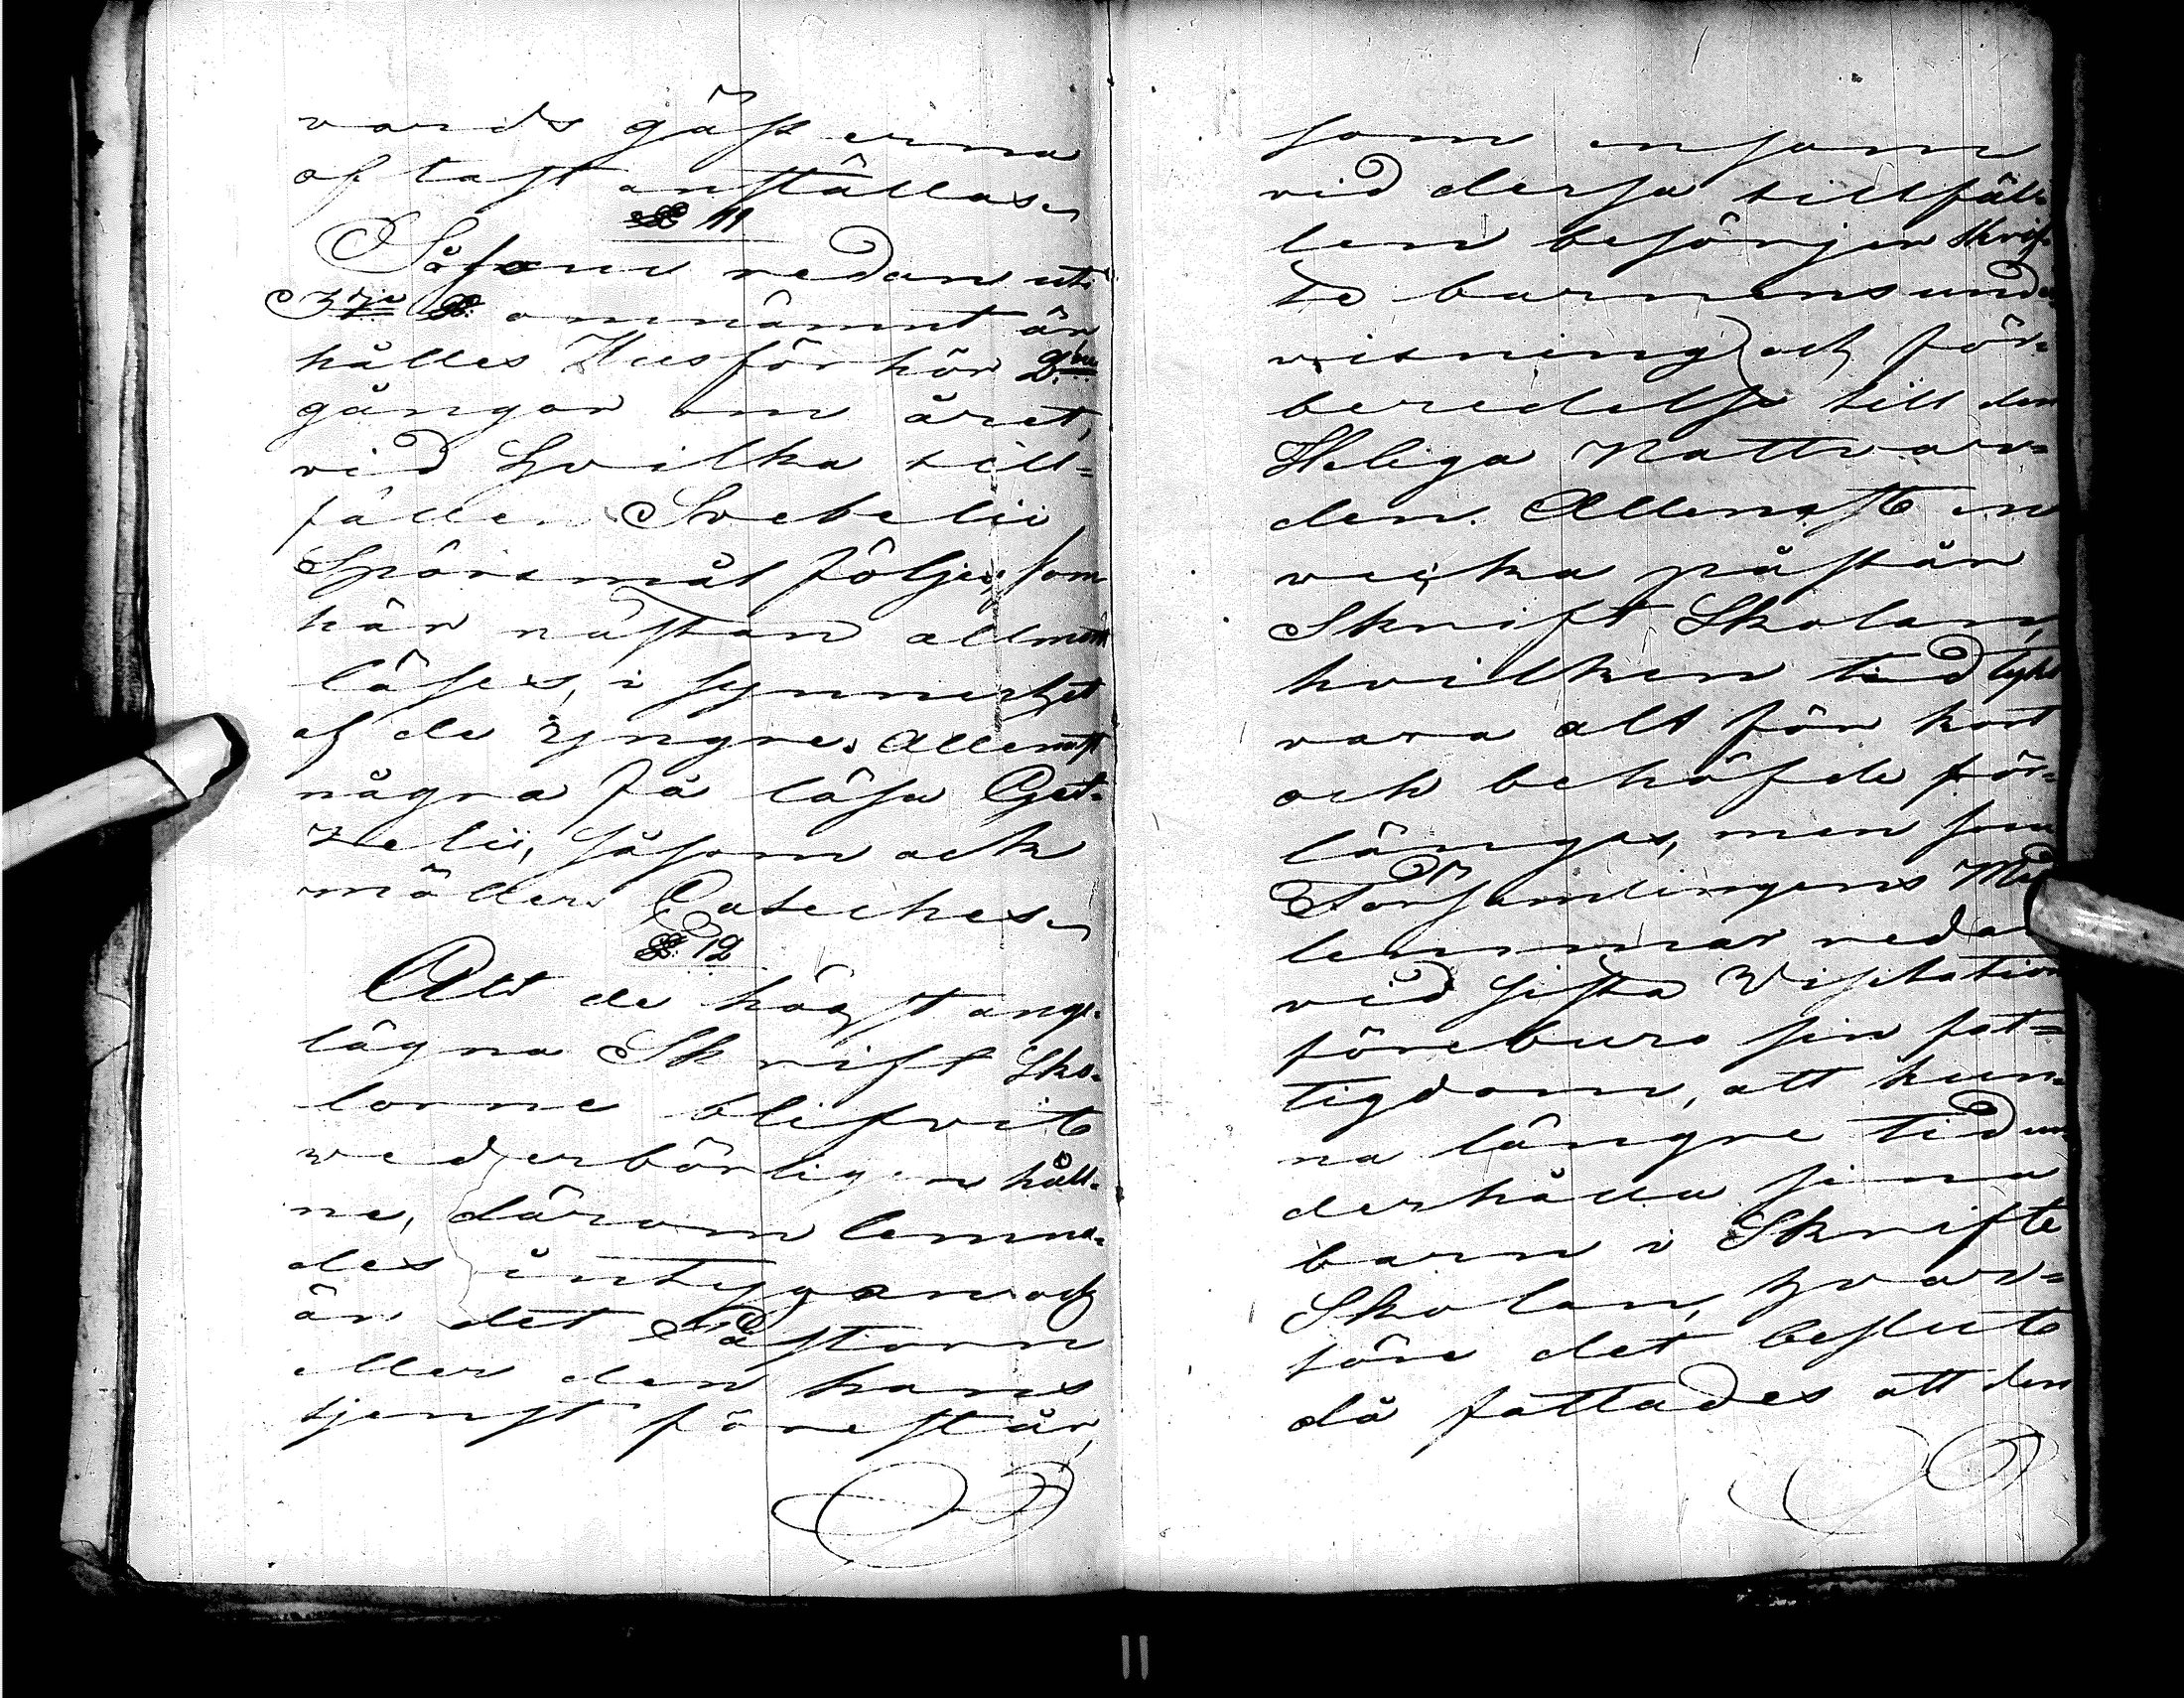 vards gästerna
oftast anställas.
§ 11
Såsom redan uti
3dje §. omnämnt är
hålles Husförhör 2ne
gångor om året,
vid hvilka till=
fällen Svebelii
Spörsmål följes, som
här nästan allmänt
läses, i synnerhet
af de yngre. Allenast
några få läsa Get=
zelii, såsom ock
Cateches.
§. 12
Att de högst ange=
lägna Skrift Sko=
lorne blifvit
vederbörligen håll=
ne, därom lemna=
des intygan och
är det Pastorn
eller den hans
tjenst förestår,
som ensam
vid dessa tillfäl=
len besörjer Skrif=
te barnens under
visning och för=
beredelse till den
Heliga Nattvar=
den. Allenast en
vecka påstår
Skrift Skolan,
hvilken tid tykes
vara alt för kort
och behöfde för=
länges, men som
Församlingens Med
lemmar redan
vid sista Visitation
föreburo sin fat=
tigdom, att kun=
na längre tid un=
derhålla sina
barn i Skrifte
Skolan, hvar=
före det beslut
då fattades att den
11